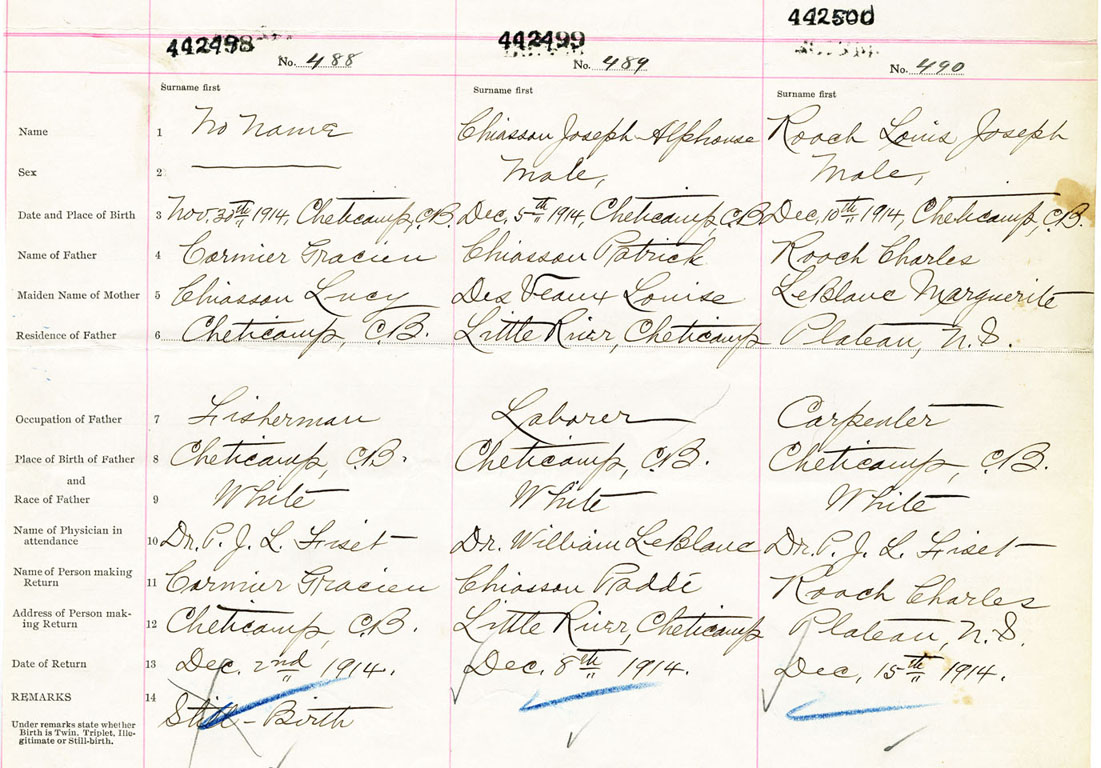 442498 442499 442500
No. 488 No. 489 No. 490
Surname first Surname first Surname first
Name 1 No Name Chiasson Joseph-Alphonse Roach Louis Joseph
Sex 2 Male, Male,
Date and Place of Birth 3 Nov. 30th 1914, Cheticamp, C.B. Dec. 5th 1914, Cheticamp C.B. Dec. 10th 1914, Cheticamp, C.B.
Name of Father 4 Cormier Gracien Chiasson Patrick Roach Charles
Maiden Name of Mother 5 Chiasson Lucy Des Veaux Louise LeBlanc Marguerite
Residence of Father 6 Cheticamp, C.B. Little River, Cheticamp Plateau, N.S.
Occupation of Father 7 Fisherman Laborer Carpenter
Place of Birth of Father 8 Cheticamp, C.B. Cheticamp, C.B. Cheticamp, C.B.
and
Race of Father 9 White White White
Name of Physician in
attendance 10 Dr. P. J. L. Fiset Dr. William LeBlanc Dr. P. J. L. Fiset
Name of Person making
Return 11 Cormier Gracien Chiasson Paddé Roach Charles
Address of Person mak-
ing Return 12 Cheticamp, C.B. Little River, Cheticamp Plateau, N.S.
Date of Return 13 Dec. 2nd 1914. Dec. 8th 1914. Dec. 15th 1914.
REMARKS 14 Still-Birth
Under remarks state whether
Birth is Twin, Triplet, Ille-
gitimate or Still-birth.